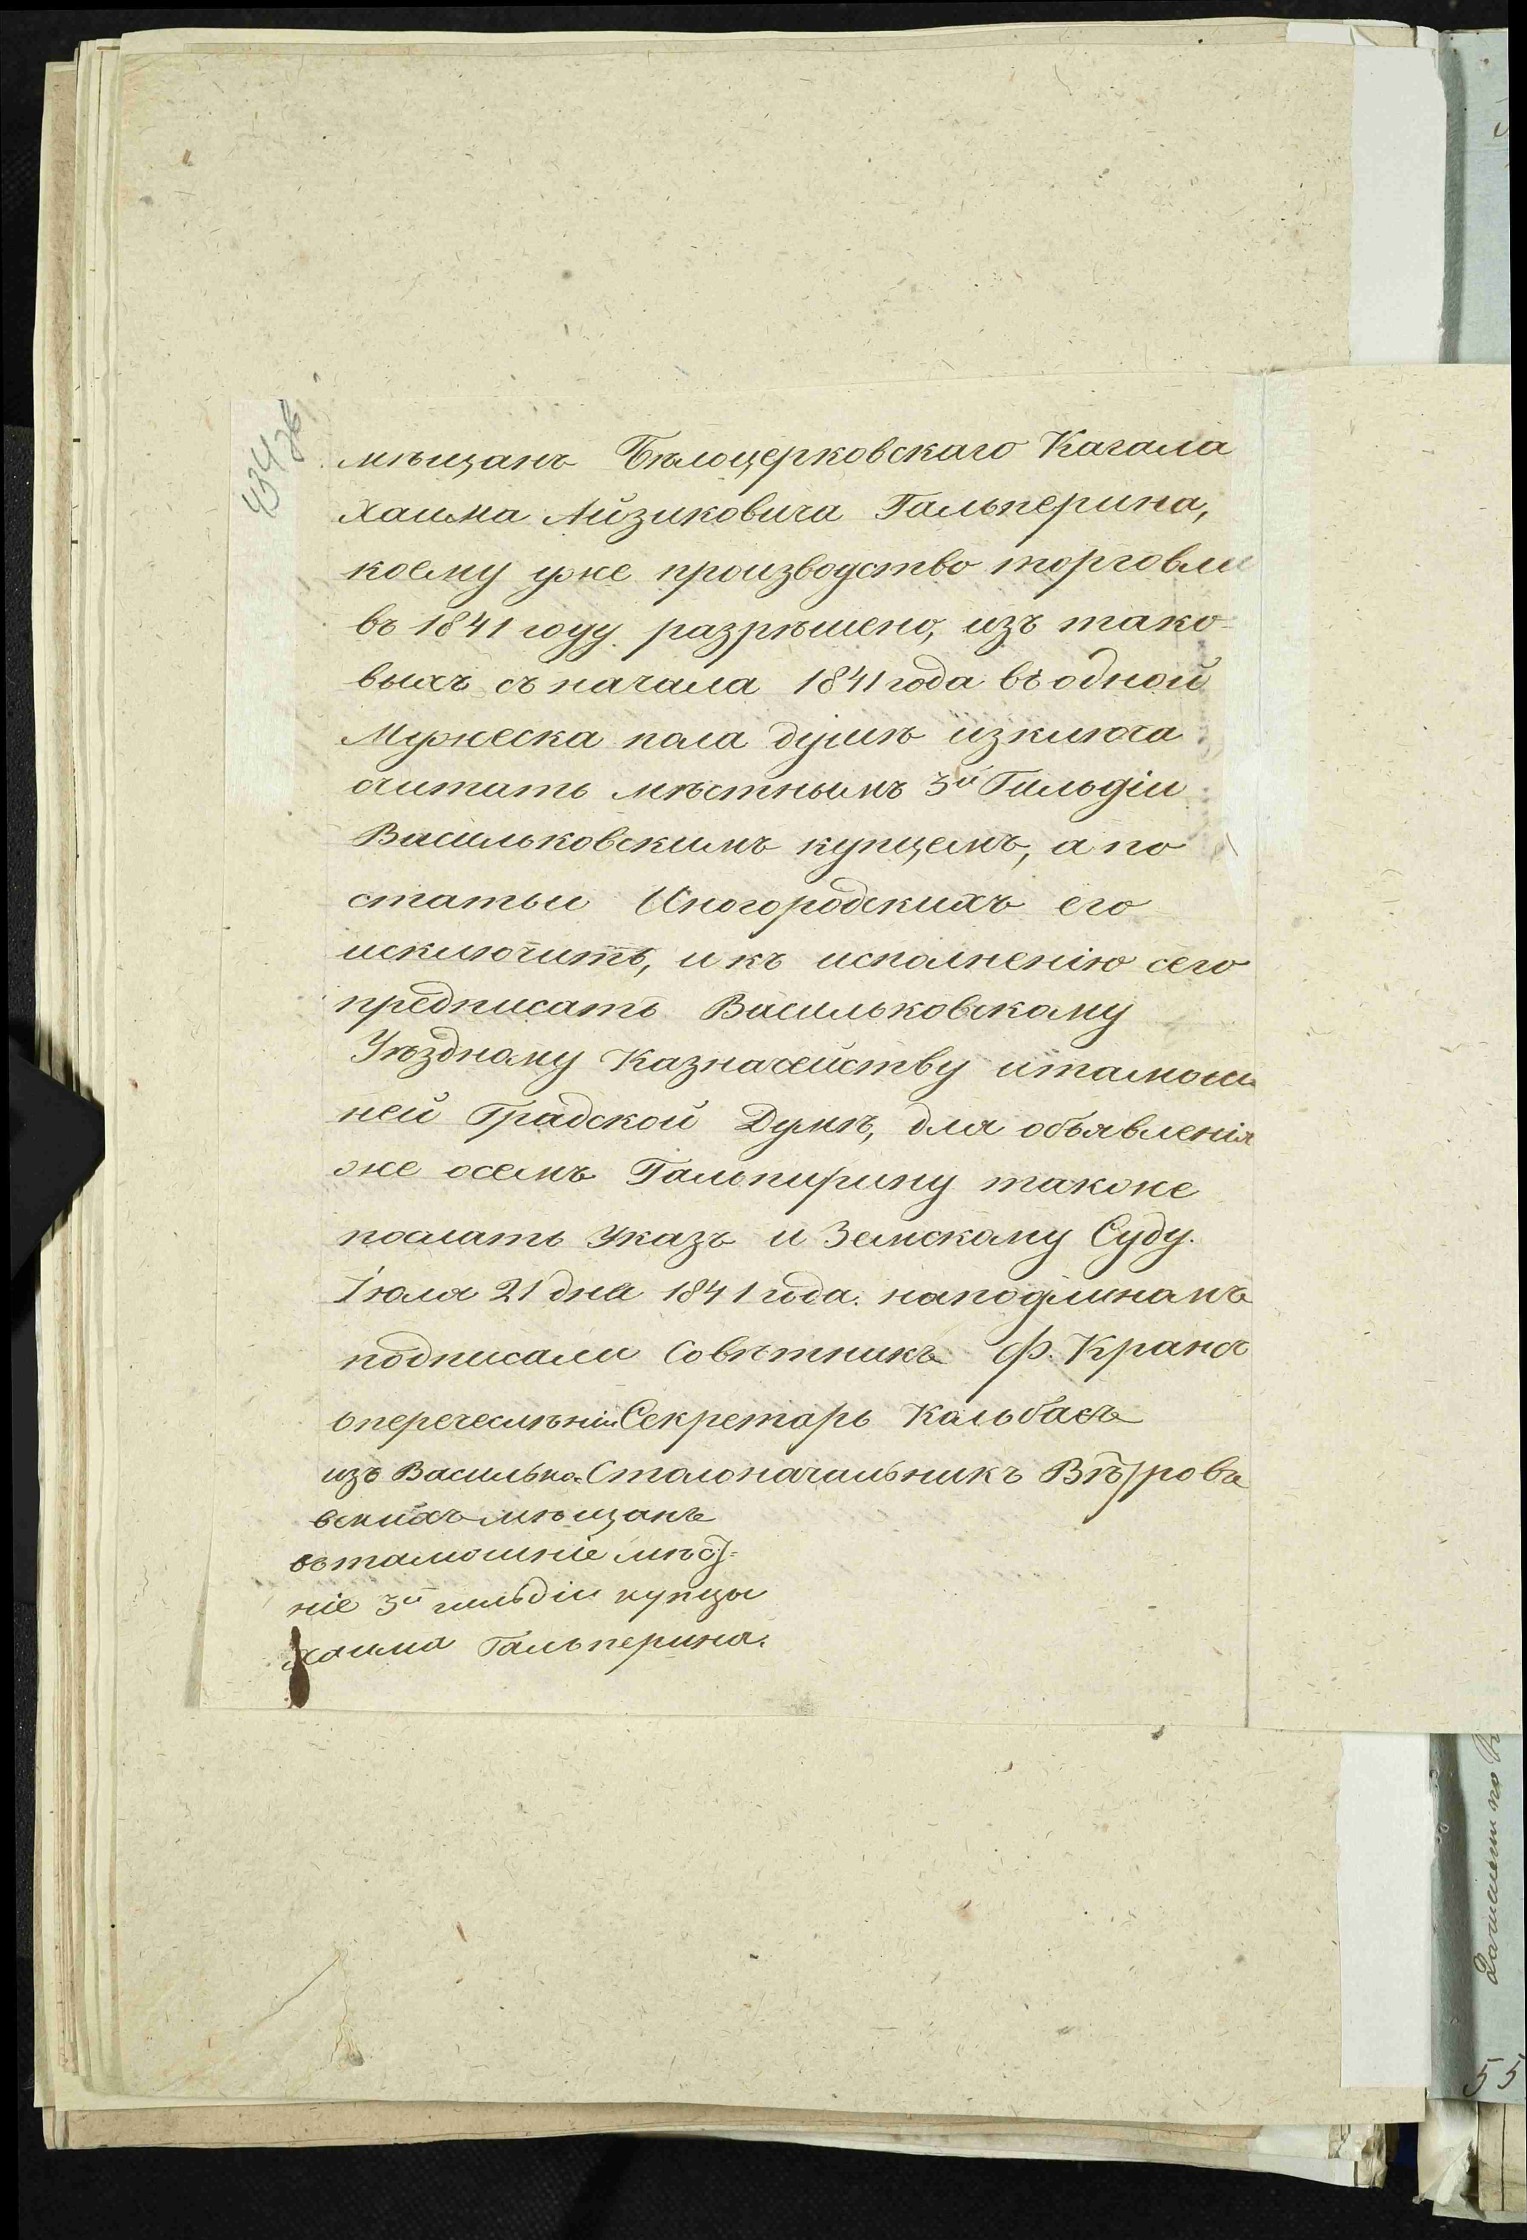 434 об
мѣщанъ Бѣлоцерковскаго Кагала
Хаима Айзиковича Гальперина,
коему уже производство торговли
въ 1841 году разрѣшено, изъ тако-
выхъ съ начала 1841 года въ одной
Мужеска пола душѣ изключа
считать мѣстнымъ 3й Гильдіи
Васильковскимъ купцемъ, а по
статьи Иногородскихъ его
исключить, и къ исполненію сего
предписать Васильковскому
Уѣздному Казначейству и тамош
ней Градской Думѣ, для объявленія
же осемъ Гальпирину также
послать Указъ и Земскому Суду.
Іюля 21 дня 1841 года. на подлинамъ
подписали Совѣтникъ Ф. Крансъ
о перечеслѣніи Секретарь Кальбасъ
изъ Василько- Столоначальникъ Вѣтрова
вскихъ мѣщанъ
въ тамошніе мѣст-
ніе 3й гильдіи купцы
Хаима Гальперина.
55